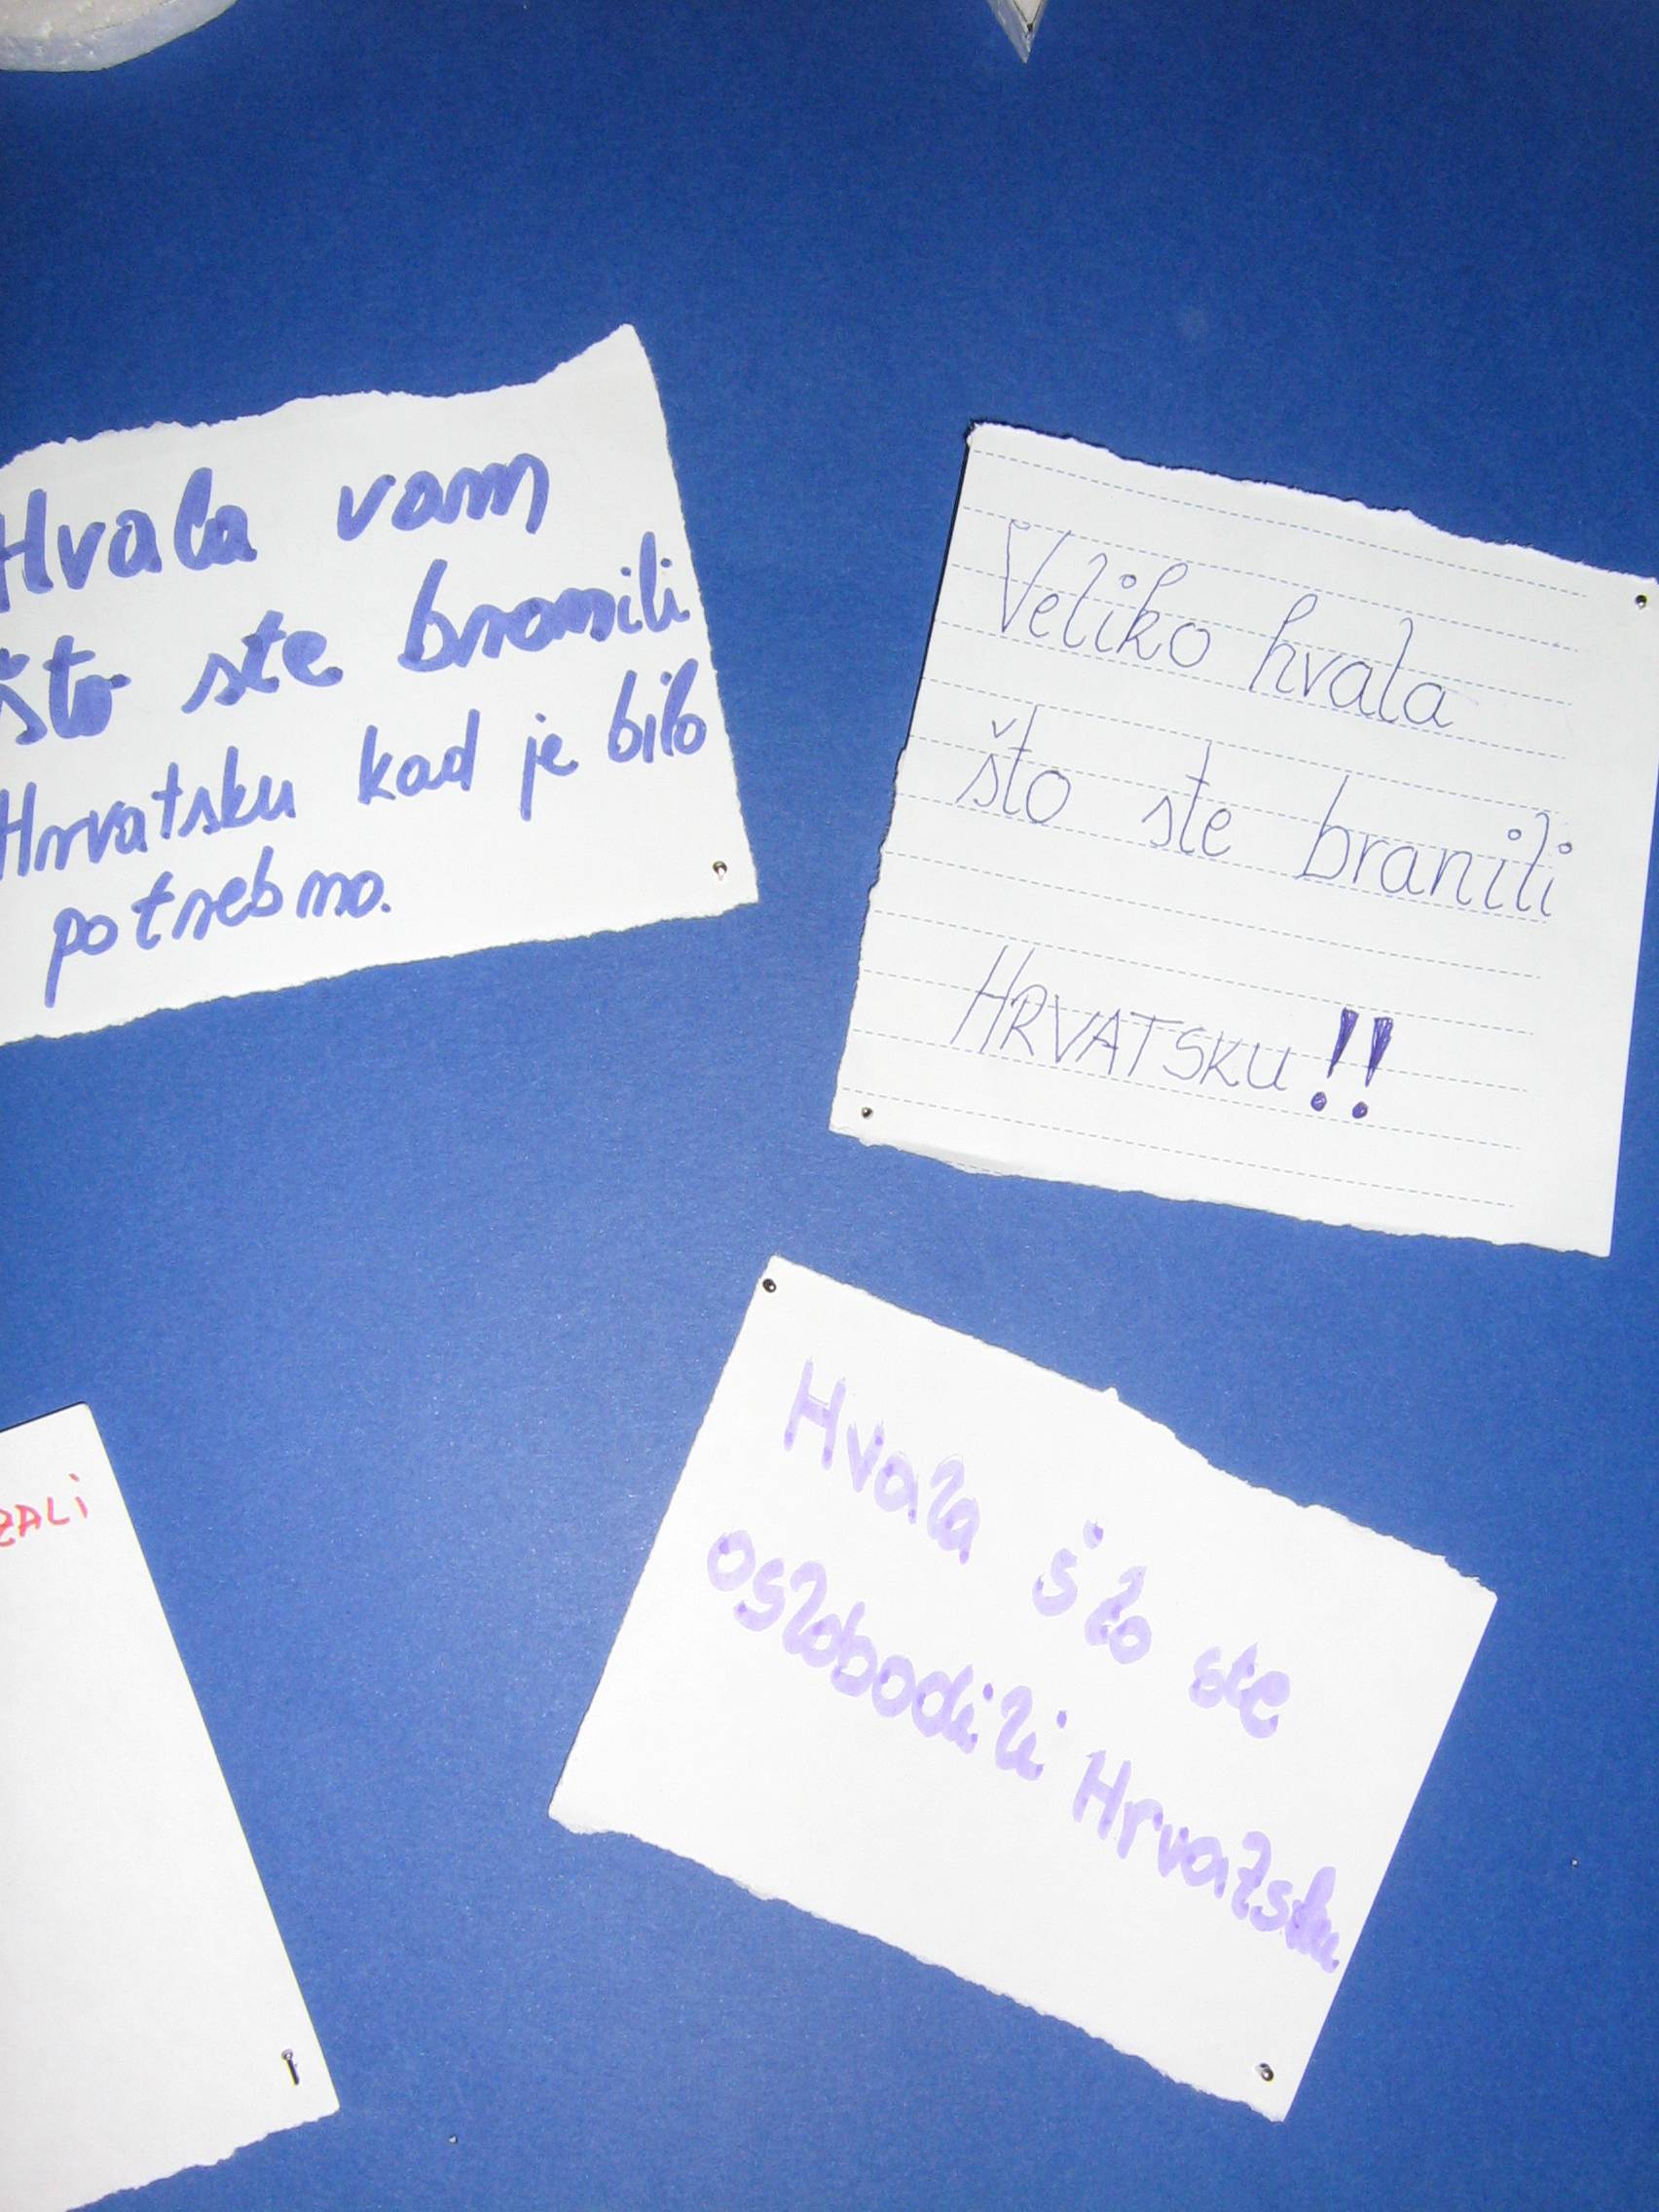 Hvala vam
što ste branili
Hrvatsku kad je bilo
potrebno.
Veliko hvala
što ste branili
HRVATSKU!!
Hvala što ste
oslobodili Hrvatsku